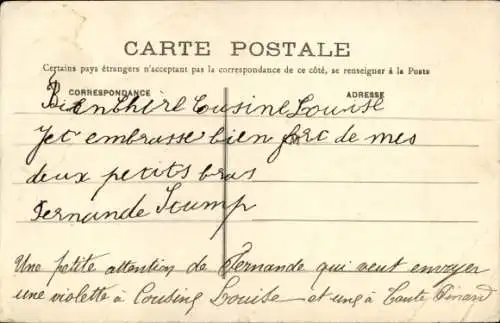 CARTE POSTALE
Certains pays étrangers n'acceptant pas la correspondance de ce côté, se renseigner à la Poste
CORRESPONDANCE ADRESSE
Bien chère Cousine Louise
Je t embrasse bien fort de mes
deux petits bras
Fernande Stump
Une petite attention de Fernande qui veut envoyer
une violette à Cousine Louise et une à Tante